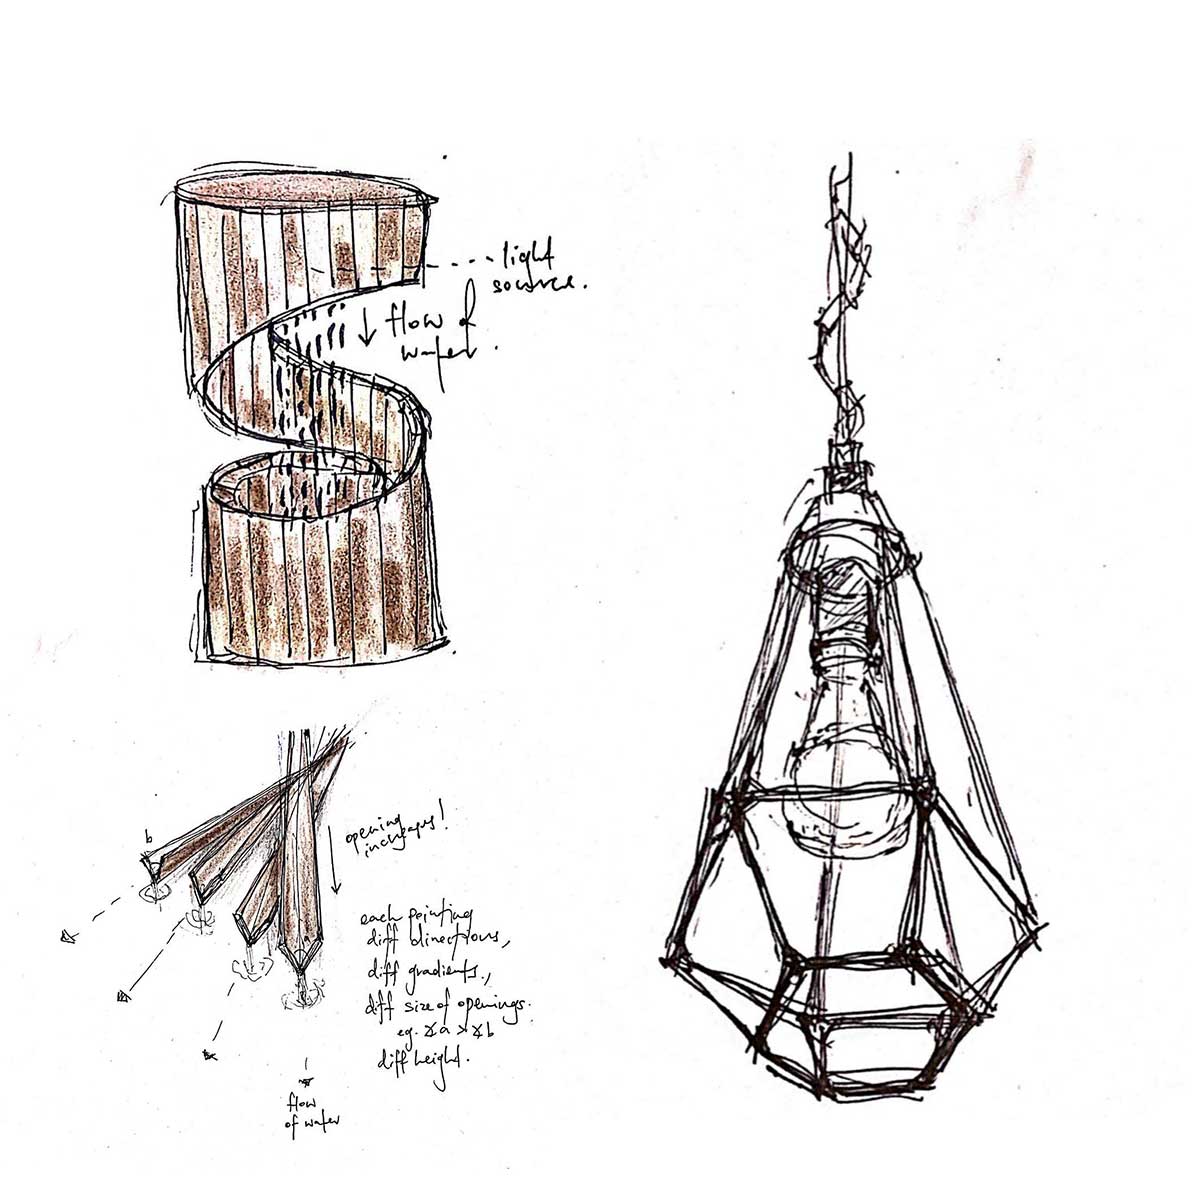 light
source.
flow of
water.
b
opening
increases!
each pointing
diff directions,
diff gradients,
diff size of openings.
eg. ∡a > ∡b
diff height.
flow
of water